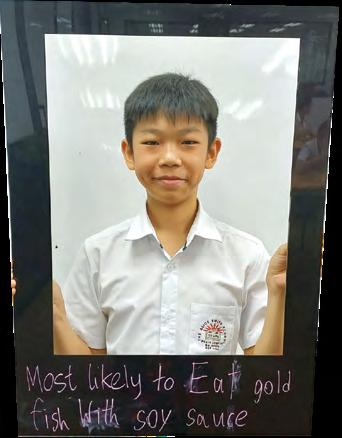 Most likely to Eat gold
fish With soy sauce